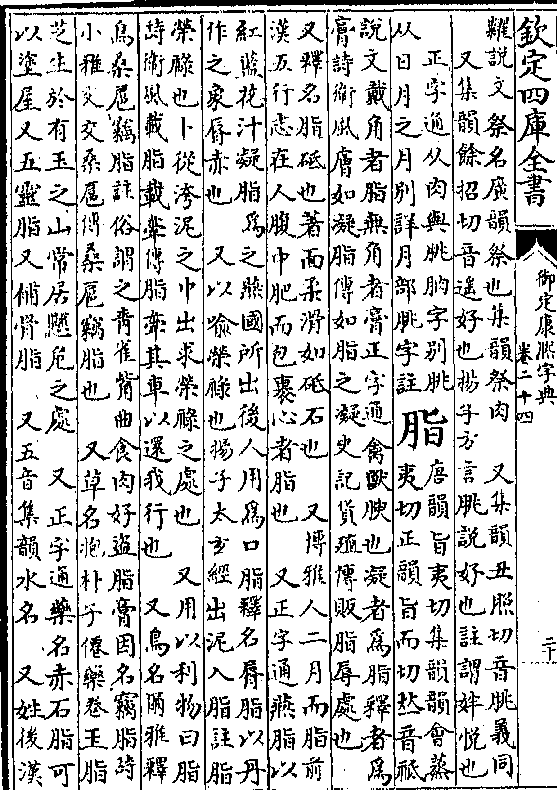 欽定四庫全書
御定康熙字典
卷二十四
二十
糶說文祭名廣韻祭也集韻祭肉　又集韻丑照切音朓義同
又集韻餘招切音遙好也揚子方言朓說好也註謂姅悅也
正字通从肉與朓朒字別朓
从日月之月別詳月部朓字註
脂
唐韻旨夷切集韻韻會蒸
夷切正韻旨而切𠀤音祗
說文戴角者脂無角者膏正字通禽獸腴也凝者為脂釋者為
膏詩衛風膚如凝脂傳如脂之凝史記貨殖傳販脂辱處也
又釋名脂砥也著面柔滑如砥石也　又博雅人二月而脂前
漢五行志在人腹中肥而包裹心者脂也　又正字通燕脂以
紅藍花汁凝脂為之燕國所出後人用為口脂釋名脣脂以丹
作之象脣赤也　又以喻榮祿也揚子太玄經出泥入脂註脂
榮祿也卜從洿泥之中出求榮祿之處也　又用以利物曰脂
詩衛風載脂載舝傳脂舝其車以還我行也　又鳥名爾雅釋
鳥桑扈竊脂註俗謂之青雀觜曲食肉好盜脂膏因名竊脂詩
小雅交交桑扈傳桑扈竊脂也　又草名抱朴子僊藥卷玉脂
芝生於有玉之山常居懸危之處　又正字通藥名赤石脂可
以塗屋又五靈脂又補骨脂　又五音集韻水名　又姓後漢